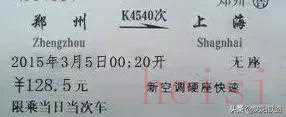 郑州 K4540次 上海
Zhengzhou Shagnhai
2015年3月5日00:20开 无座
¥128.5元 新空调硬座快速
限乘当日当次车
heisi